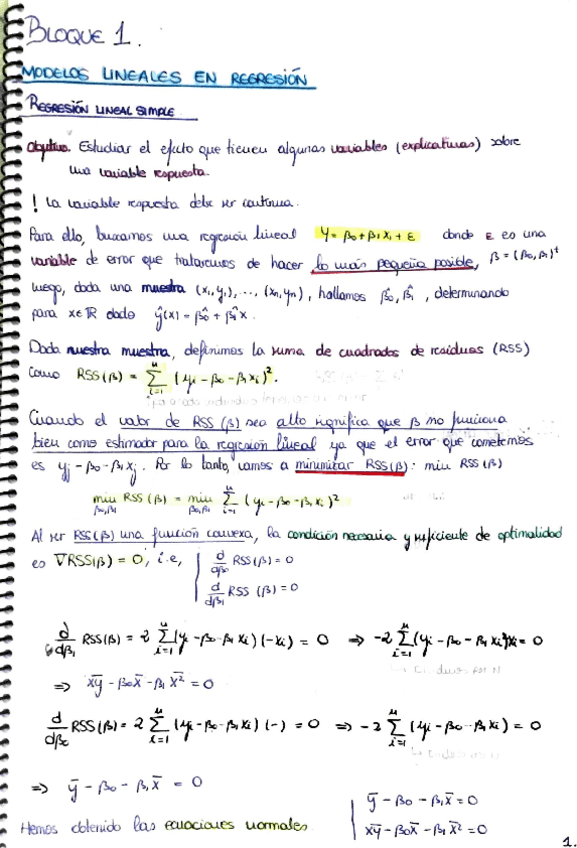 BLOQUE 1.
MODELOS LINEALES EN REGRESIÓN
REGRESIÓN LINEAL SIMPLE
Objetivo. Estudiar el efecto que tienen algunas variables (explicativas) sobre
una variable respuesta.
! La variable respuesta debe ser continua.
Para ello, buscamos una regresión lineal y = β₀ + β₁xᵢ + ε donde ε es una
variable de error que trataremos de hacer lo más pequeña posible, β = (β₀, β₁)ᵗ
luego, dada una muestra (x₁, y₁), ..., (xₙ, yₙ), hallamos β̂₀, β̂₁, determinando
para x ∈ ℝ dado ŷ(x) = β̂₀ + β̂₁x.
Dada nuestra muestra, definimos la suma de cuadrados de residuos (RSS)
como RSS(β) = Σᵢ₌₁ⁿ (yᵢ - β₀ - β₁xᵢ)².
Cuando el valor de RSS(β) sea alto significa que β no funciona
bien como estimador para la regresión lineal ya que el error que cometemos
es yⱼ - β₀ - β₁xⱼ. Por lo tanto, vamos a minimizar RSS(β): min RSS(β)
min β₀,β₁ RSS(β) = min β₀,β₁ Σᵢ₌₁ⁿ (yᵢ - β₀ - β₁xᵢ)²
Al ser RSS(β) una función convexa, la condición necesaria y suficiente de optimalidad
es ∇RSS(β) = 0, i.e, | d/dβ₀ RSS(β) = 0
| d/dβ₁ RSS(β) = 0
d/dβ₁ RSS(β) = 2 Σᵢ₌₁ⁿ (yᵢ - β₀ - β₁xᵢ)(-xᵢ) = 0 ⇒ -2 Σᵢ₌₁ⁿ (yᵢ - β₀ - β₁xᵢ)xᵢ = 0
⇒ x̄ȳ - β₀x̄ - β₁x̄² = 0
d/dβ₀ RSS(β) = 2 Σᵢ₌₁ⁿ (yᵢ - β₀ - β₁xᵢ)(-) = 0 ⇒ -2 Σᵢ₌₁ⁿ (yᵢ - β₀ - β₁xᵢ) = 0
⇒ ȳ - β₀ - β₁x̄ = 0
Hemos obtenido las ecuaciones normales | ȳ - β₀ - β₁x̄ = 0
| x̄ȳ - β₀x̄ - β₁x̄² = 0
1.